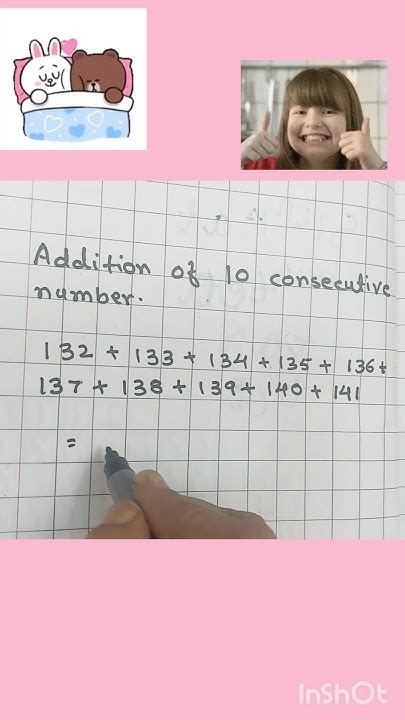 Addition of 10 consecutive
number.
132 + 133 + 134 + 135 + 136+
137 + 138 + 139+ 140 + 141
=
InShOt